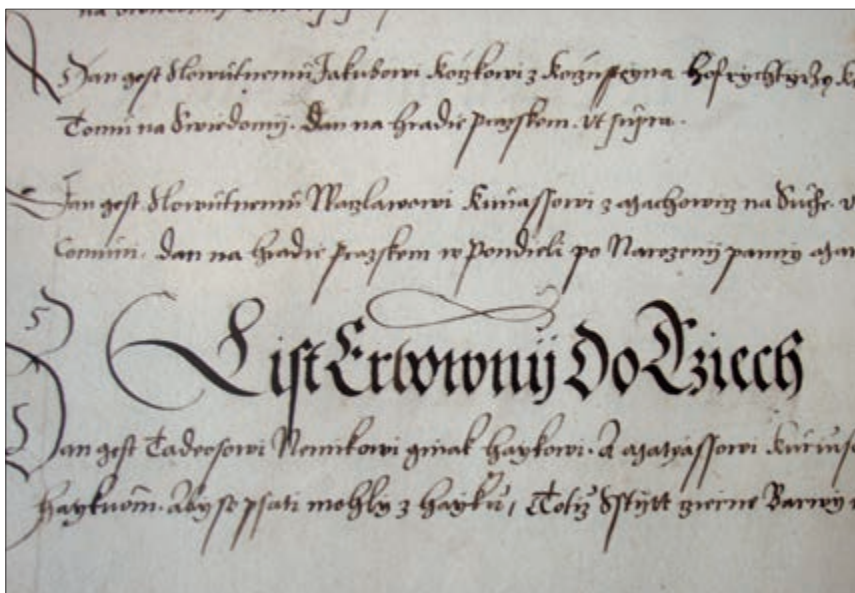 Dan gest Slowutnemu Jakubovi Kozkowi z Kozusseyna hofrychtyrzy
Tomu na Swiedomij. Dan na hradie prazskem. ut supra.
Dan gest Slowutnemu Waczlawowi Kunassowi z Machowicz na Suche.
Comuni. Dan na hradie prazskem w Pondieli po Narozenij panny
List Erbownij Do Cziech
Dan gest Tadeosowi Nemikowi ginak haykowi. A Matyassowi
haykuom. Aby se psati mohly z hayku, Totiz Sstijtt